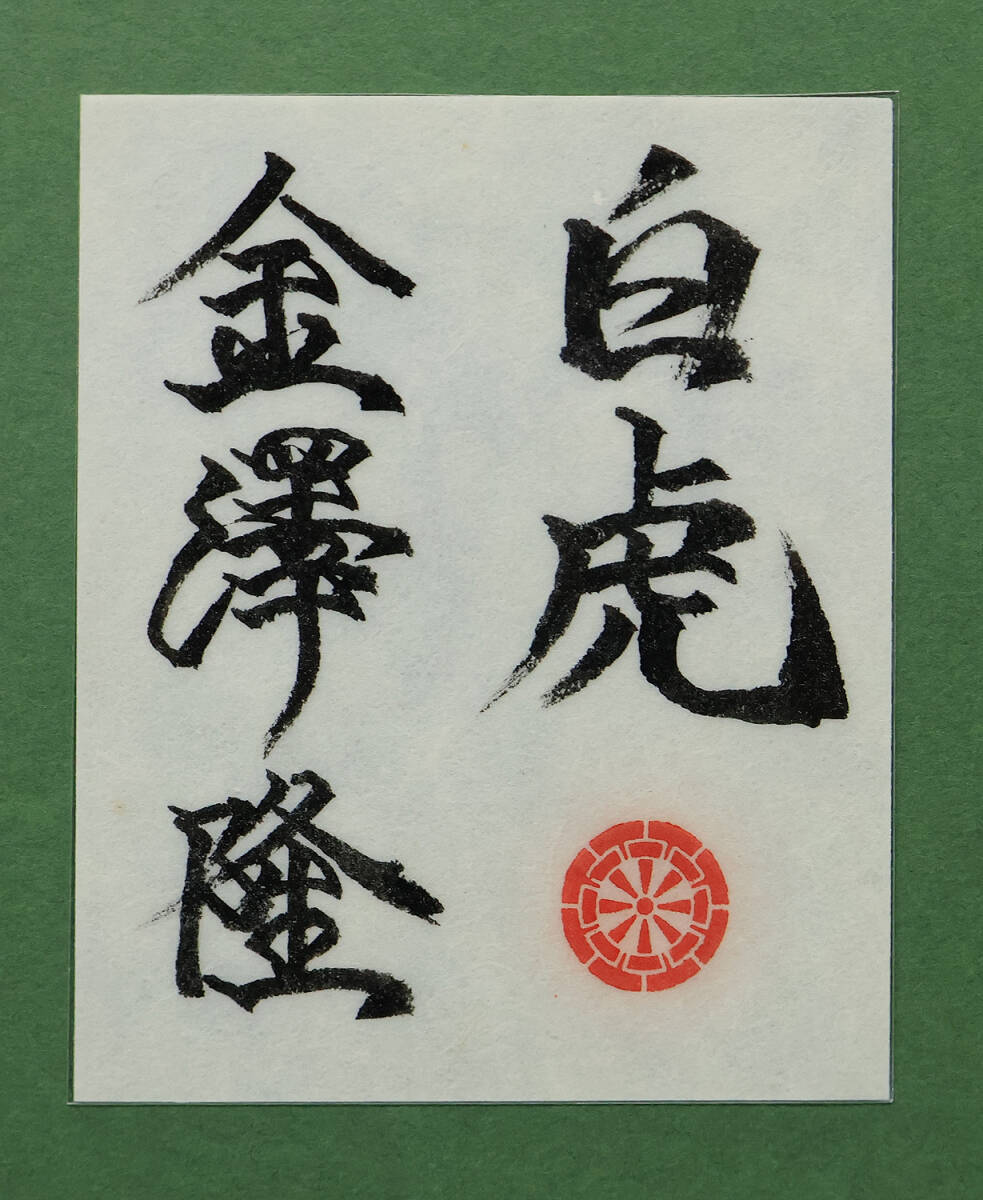 白虎
金澤隆